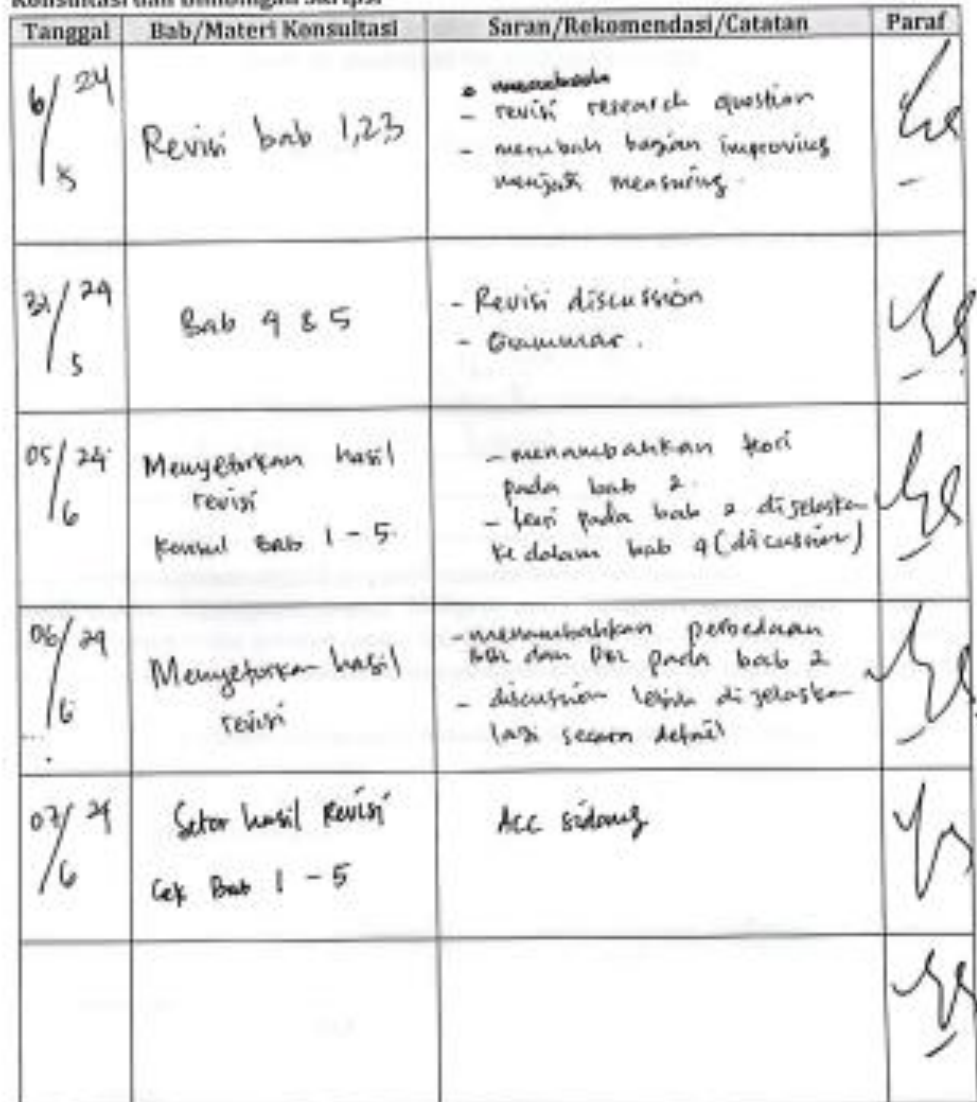 Konsultasi dan Bimbingan Skripsi
Tanggal Bab/Materi Konsultasi Saran/Rekomendasi/Catatan Paraf
6/5 24
Revisi bab 1,2,3
- revisi research question
- merubah bagian improving
menjadi measuring.
/5 24
Bab 4 & 5
- Revisi discussion
- Grammar.
05/6 24
Menyetorkan hasil
revisi
Konsul Bab 1 - 5.
- menambahkan teori
pada bab 2.
- teori pada bab 2 dijelaskan
ke dalam bab 4 (discussion)
06/6 24
Menyetorkan hasil
revisi
- menambahkan perbedaan
dan PBL pada bab 2
- discussion lebih dijelaskan
lagi secara detail
07/6 24
Setor hasil Revisi
Cek Bab 1 - 5
Acc sidang